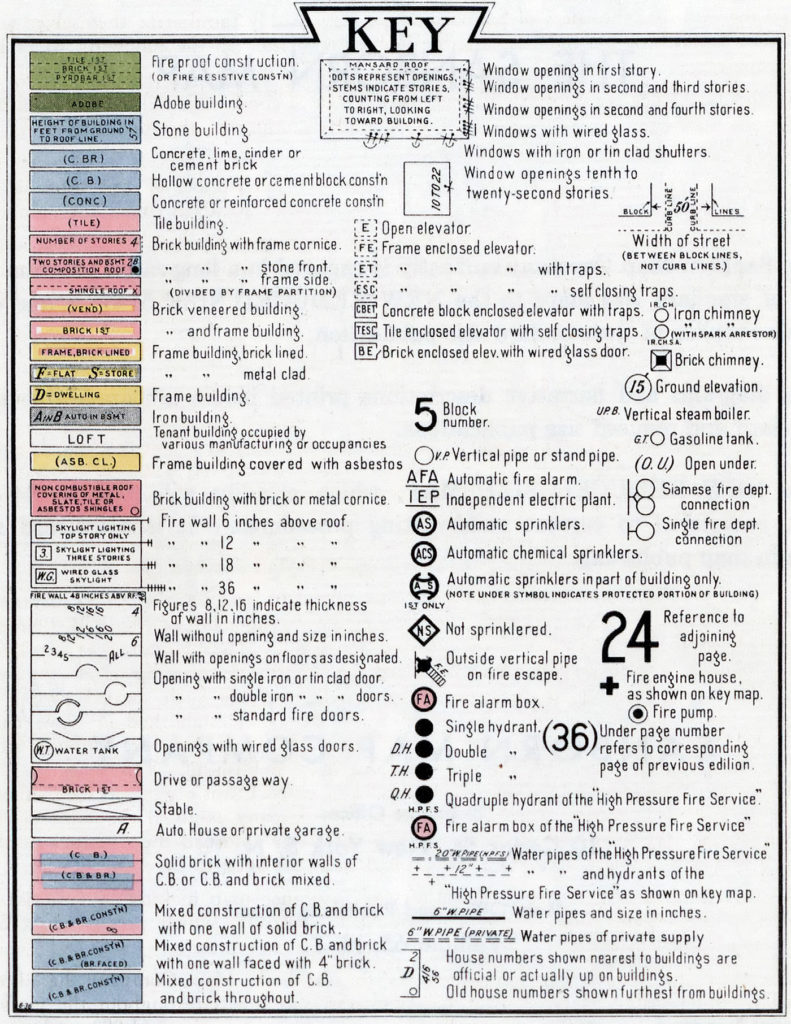 KEY
TILE 1ST
BRICK 1ST
PYROBAR 1ST
Fire proof construction.
(OR FIRE RESISTIVE CONST'N)
ADOBE
Adobe building.
HEIGHT OF BUILDING IN
FEET FROM GROUND
TO ROOF LINE.
57
Stone building
(C. BR.)
Concrete, lime, cinder or
cement brick
(C. B.)
Hollow concrete or cement block const'n
(CONC)
Concrete or reinforced concrete const'n
(TILE)
Tile building.
NUMBER OF STORIES 4
Brick building with frame cornice.
TWO STORIES AND BSMT 2B
COMPOSITION ROOF
" " stone front.
" " frame side.
(DIVIDED BY FRAME PARTITION)
SHINGLE ROOF X
(VEND)
Brick veneered building.
BRICK 1ST
" and frame building.
FRAME, BRICK LINED
Frame building, brick lined.
F=FLAT S=STORE
" " metal clad.
D=DWELLING
Frame building.
A IN B AUTO IN BSMT
Iron building.
LOFT
Tenant building occupied by
various manufacturing or occupancies
(ASB. CL.)
Frame building covered with asbestos
NON COMBUSTIBLE ROOF
COVERING OF METAL,
SLATE, TILE OR
ASBESTOS SHINGLES
Brick building with brick or metal cornice.
SKYLIGHT LIGHTING
TOP STORY ONLY
3
SKYLIGHT LIGHTING
THREE STORIES
W.G.
WIRED GLASS
SKYLIGHT
Fire wall 6 inches above roof.
" " 12 " " "
" " 18 " " "
" " 36 " " "
FIRE WALL 48 INCHES ABV RF. 48
8 12 16 16 4
Figures 8,12,16 indicate thickness
of wall in inches.
6
Wall without opening and size in inches.
2345 ALL
Wall with openings on floors as designated.
Opening with single iron or tin clad door.
" " double iron " " " doors.
" " standard fire doors.
W.T WATER TANK
Openings with wired glass doors.
BRICK 1ST
Drive or passage way.
Stable.
A.
Auto. House or private garage.
(C. B.)
(C.B. & BR.)
Solid brick with interior walls of
C.B. or C.B. and brick mixed.
(C.B. & BR. CONST'N)
Mixed construction of C.B. and brick
with one wall of solid brick.
(C.B. & BR. CONST'N)
(BR. FACED)
Mixed construction of C.B and brick
with one wall faced with 4" brick.
(C.B. & BR. CONST'N)
Mixed construction of C.B.
and brick throughout.
MANSARD ROOF
DOTS REPRESENT OPENINGS,
STEMS INDICATE STORIES,
COUNTING FROM LEFT
TO RIGHT, LOOKING
TOWARD BUILDING.
Window opening in first story.
Window openings in second and third stories.
Window openings in second and fourth stories.
Windows with wired glass.
Windows with iron or tin clad shutters.
10 TO 22
Window openings tenth to
twenty-second stories.
BLOCK CURB LINE 50' CURB LINE LINES
Width of street
(BETWEEN BLOCK LINES,
NOT CURB LINES.)
E Open elevator.
FE Frame enclosed elevator.
ET " " " with traps.
ESC " " " self closing traps.
CBET Concrete block enclosed elevator with traps.
TESC Tile enclosed elevator with self closing traps.
BE Brick enclosed elev. with wired glass door.
IR.CH.
Iron chimney
" "
(WITH SPARK ARRESTOR)
IR.CH.S.A.
Brick chimney.
15 Ground elevation.
5 Block
number.
U.P.B. Vertical steam boiler.
V.P. Vertical pipe or stand pipe.
G.T. Gasoline tank.
AFA Automatic fire alarm.
(O. U.) Open under.
IEP Independent electric plant.
Siamese fire dept.
connection
AS Automatic sprinklers.
Single fire dept.
connection
ACS Automatic chemical sprinklers.
A S
1ST ONLY
Automatic sprinklers in part of building only.
(NOTE UNDER SYMBOL INDICATES PROTECTED PORTION OF BUILDING)
NS Not sprinklered.
24 Reference to
adjoining
page.
F.E.
Outside vertical pipe
on fire escape.
Fire engine house,
as shown on key map.
FA Fire alarm box.
Fire pump.
Single hydrant.
D.H. Double "
T.H. Triple "
(36) Under page number
refers to corresponding
page of previous edition.
Q.H.
H.P.F.S.
Quadruple hydrant of the "High Pressure Fire Service"
FA
H.P.F.S.
Fire alarm box of the "High Pressure Fire Service"
20" W.PIPE (H.P.F.S.) Water pipes of the "High Pressure Fire Service"
+ + 12" + + " " and hydrants of the
"High Pressure Fire Service" as shown on key map.
6" W.PIPE Water pipes and size in inches.
6" W.PIPE (PRIVATE) Water pipes of private supply
2
D 416 56
House numbers shown nearest to buildings are
official or actually up on buildings.
Old house numbers shown furthest from buildings.